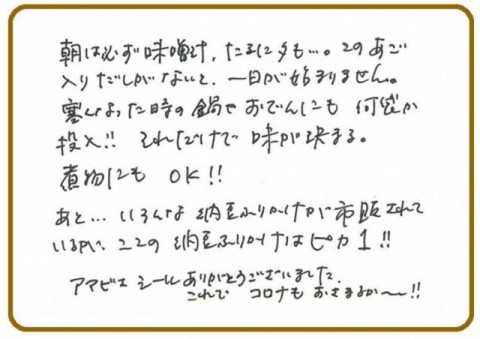 朝は必ず味噌汁、たまに夕も…。このあご
入りだしがないと、一日が始まりません。
寒くなった時の鍋やおでんにも 何袋か
投入!! それだけで 味が決まる。
煮物にも OK!!
あと… いろんな 納豆ふりかけが市販されて
いるが、ここの 納豆ふりかけはピカ1!!
アマビエ シール ありがとうございました。
これで コロナも おさまるか〜!!